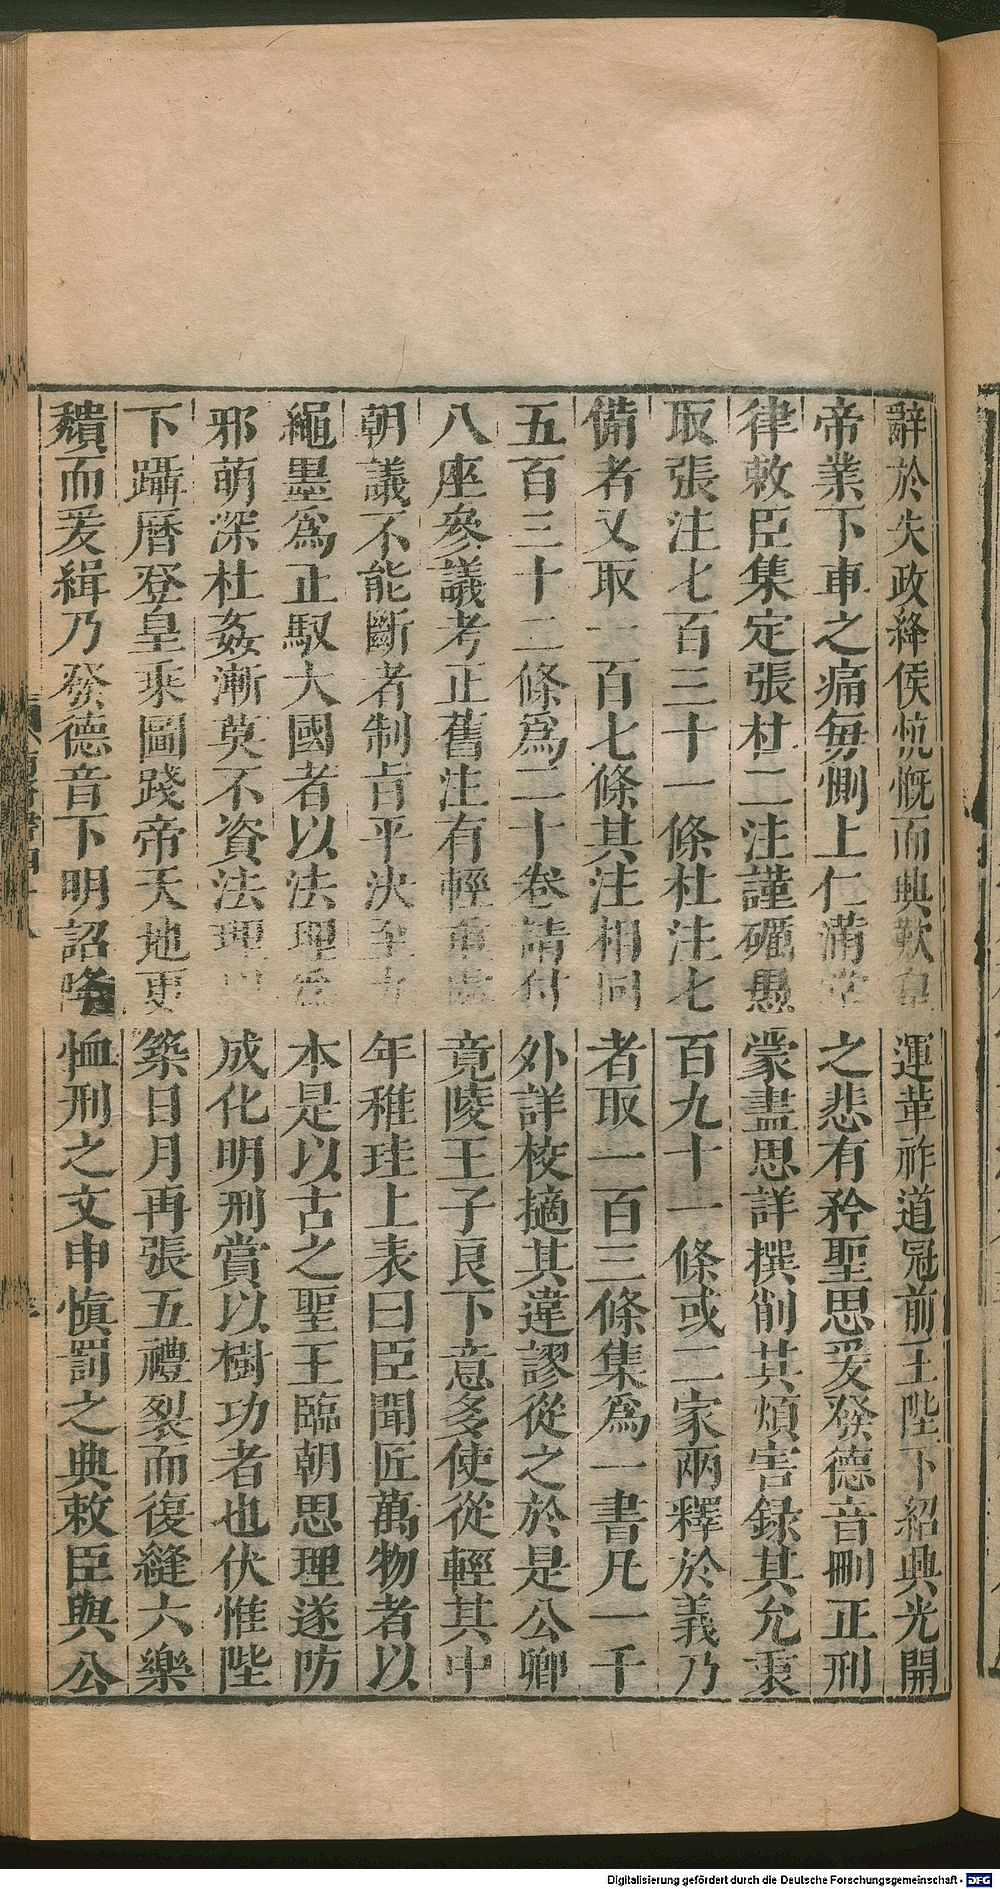 辭於失政絳侯忼慨而興歎皇運革祚道冠前王陛下紹興光開
帝業下車之痛每惻上仁滿堂之悲有矜聖思爰發德音刪正刑
律敕臣集定張杜二注謹礪愚蒙盡思詳撰削其煩害錄其允衷
取張注七百三十一條杜注七百九十一條或二家兩釋於義乃
備者又取一百七條其注相同者取一百三條集爲一書凡一千
五百三十二條爲二十卷請付外詳校擿其違謬從之於是公卿
八座參議考正舊注有輕重處竟陵王子良下意多使從輕其中
朝議不能斷者制旨平決至九年稚珪上表曰臣聞匠萬物者以
繩墨爲正馭大國者以法理爲本是以古之聖王臨朝思理遂防
邪萌深杜姦漸莫不資法理以成化明刑賞以樹功者也伏惟陛
下躡曆登皇乘圖踐帝天地更築日月再張五禮裂而復縫六樂
穨而爰緝乃發德音下明詔降恤刑之文申慎罰之典敕臣與公
Digitalisierung gefördert durch die Deutsche Forschungsgemeinschaft - DFG